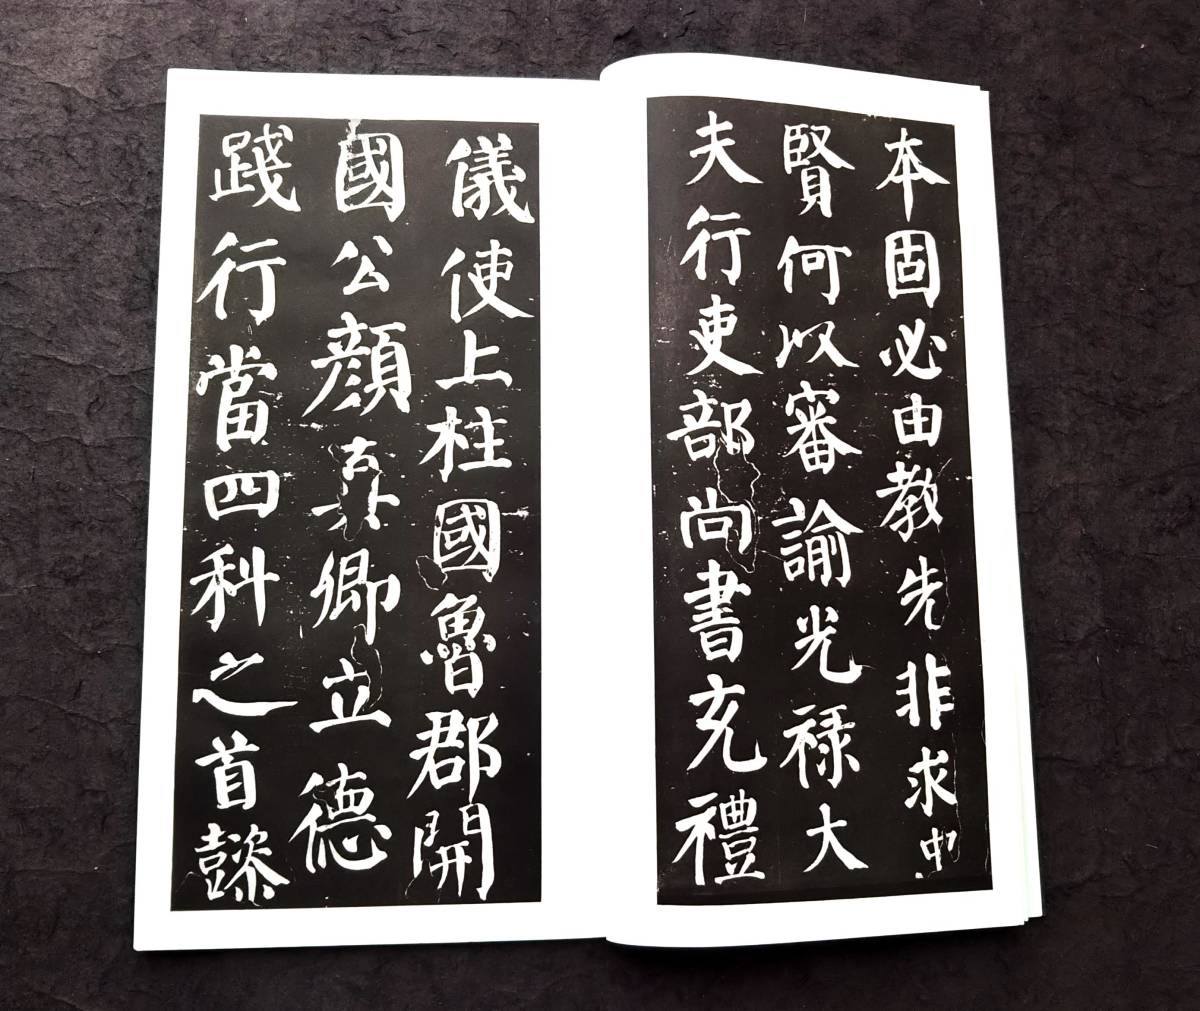 本固必由教先非求忠
賢何以審諭光禄大
夫行吏部尚書充禮
儀使上柱國魯郡開
國公顏真卿立德
踐行當四科之首懿